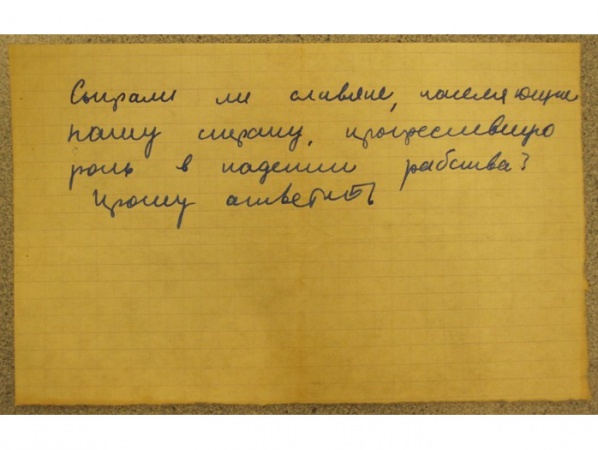 Сыграли ли славяне, населяющие
нашу страну, прогрессивную
роль в падении рабства?
Прошу ответить